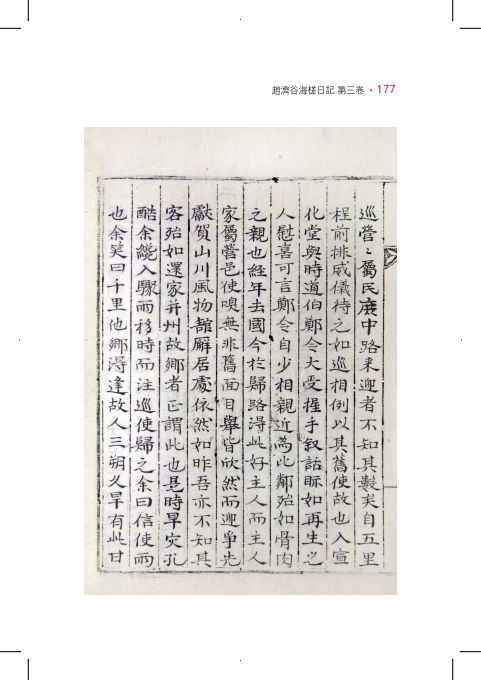 趙濟谷海槎日記 第三卷 • 177
巡營〻屬民庶中路來迎者不知其數矣自五里
程前排威儀待之如巡相例以其舊使故也入宣
化堂與時道伯鄭令大受握手叙話眎如再生之
人慰喜可言鄭令自少相親近為此鄰殆如骨肉
之親也經年去國今於歸路得此好主人而主人
家屬營邑使嗅無非舊面目擧皆欣然而迎爭先
獻賀山川風物舘廨居處依然如昨吾亦不知其
客殆如還家并州故鄉者正謂此也是時旱灾孔
酷余纔入驟雨移時而注巡使歸之余曰信使雨
也余笑曰千里他鄉得逢故人三朔久旱有此甘